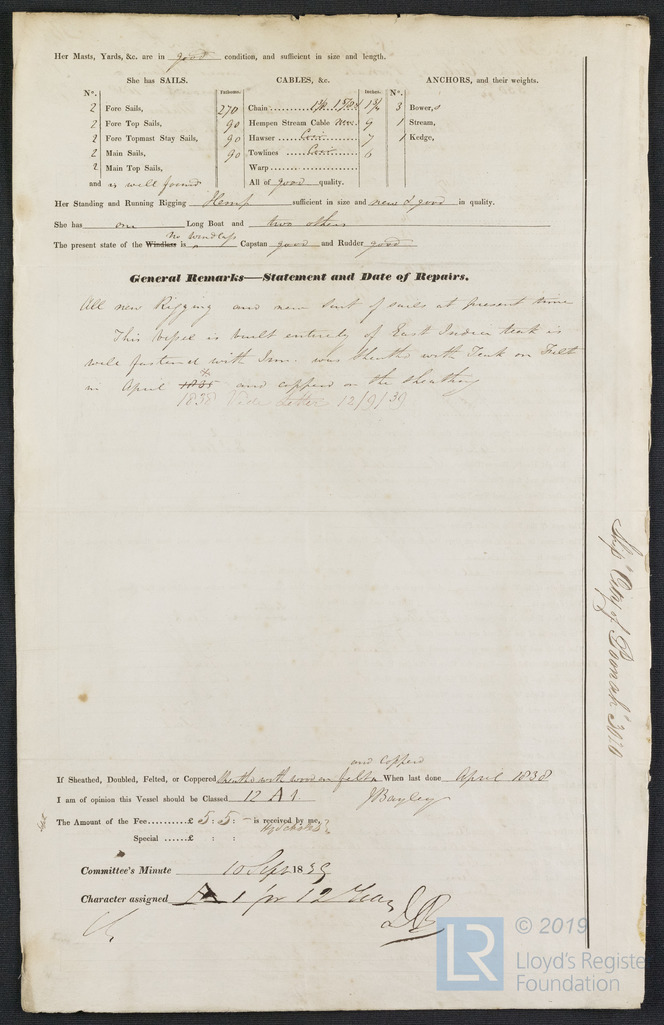 Her Masts, Yards, &c. are in good condition, and sufficient in size and length.
She has SAILS. CABLES, &c. ANCHORS, and their weights.
N°. Fathoms. Inches. N°.
2 Fore Sails, 270 Chain 3 Bowers
2 Fore Top Sails, 90 Hempen Stream Cable new 9 1 Stream,
2 Fore Topmast Stay Sails, 90 Hawser Coir 7 1 Kedge,
2 Main Sails, 90 Towlines Coir 6
2 Main Top Sails, Warp
and is well found All of good quality.
Her Standing and Running Rigging Hemp sufficient in size and new & good in quality.
She has one Long Boat and two others
no windlass
The present state of the Windlass is Capstan good and Rudder good
General Remarks—Statement and Date of Repairs.
All new Rigging and new suit of sails at present time
This vessel is built entirely of East India teak is
well fastened with Iron. was sheathed with Teak on Felt
in April 1835 and coppered on the sheathing
1838 Vide Letter 12/9/39
Ship "City of Poonah" 3010
and Copperd
If Sheathed, Doubled, Felted, or Coppered Sheathd with wood on felt When last done April 1838
I am of opinion this Vessel should be Classed 12 A 1. J Bayley
The Amount of the Fee £ 5 : 5 : - is received by me,
Special £ : :
Committee's Minute 10 Sept 1839
Character assigned A 1 for 12 Years
© 2019
LR Lloyd's Registe
Foundation